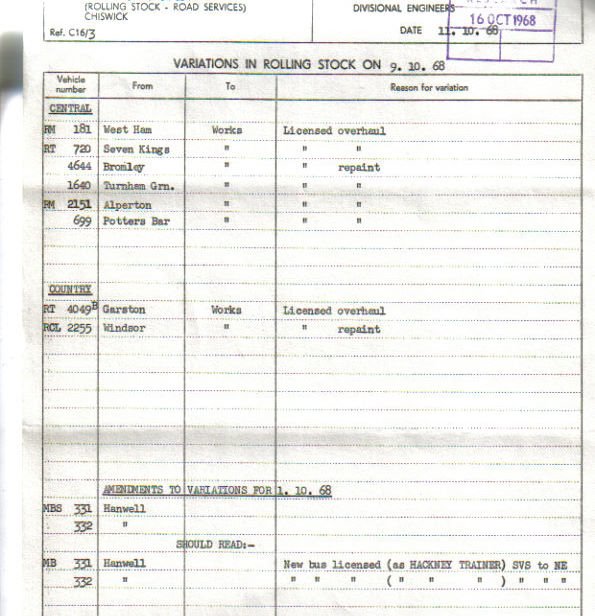 (ROLLING STOCK - ROAD SERVICES)
CHISWICK
Ref. C16/3
DIVISIONAL ENGINEERS
DATE 11. 10. 68
16 OCT 1968
VARIATIONS IN ROLLING STOCK ON 9. 10. 68
Vehicle number From To Reason for variation
CENTRAL
RM 181 West Ham Works Licensed overhaul
RT 720 Seven Kings " " "
4644 Bromley " " repaint
1640 Turnham Grn. " " "
RM 2151 Alperton " " "
699 Potters Bar " " "
COUNTRY
RT 4049B Garston Works Licensed overhaul
RCL 2255 Windsor " " repaint
AMENDMENTS TO VARIATIONS FOR 1. 10. 68
MBS 331 Hanwell
332 "
SHOULD READ:-
MB 331 Hanwell New bus licensed (as HACKNEY TRAINER) SVS to NE
332 " " " " ( " " " ) " " "